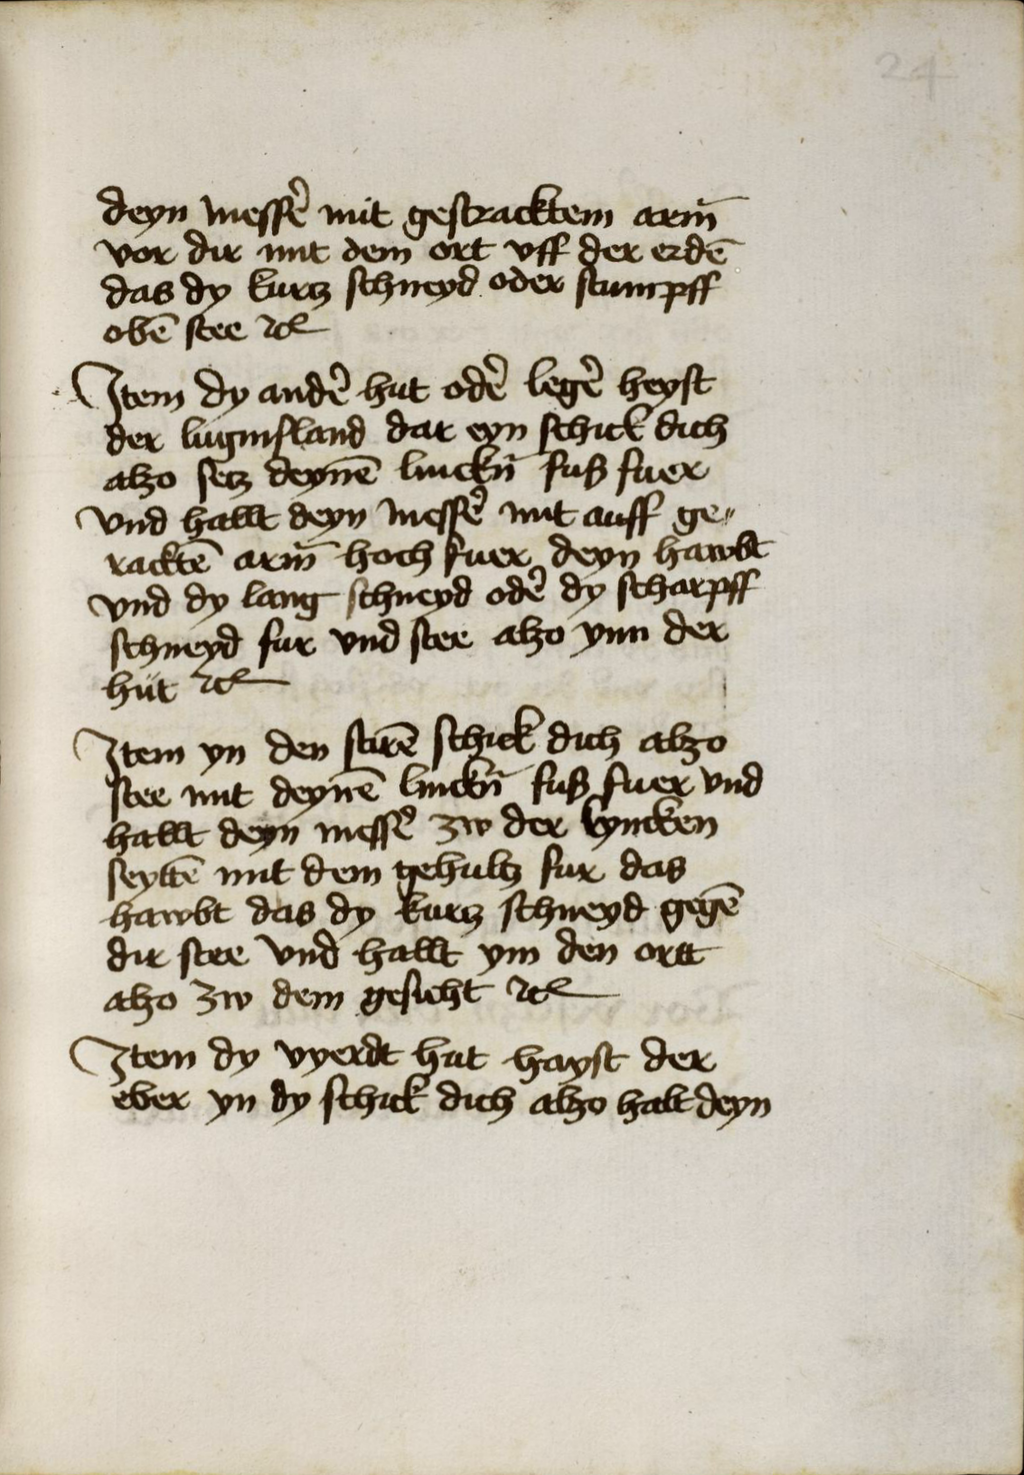 24
deyn messe͛ mit gestracktem arm̄
vor dir mit dem ort vff der erdē
das dy kurtz schneyd oder stumpff
obē stee ⁊cͭ
Jtem dy ande͛ hut ode͛ lege͛ heyst
der luginsland dar eyn schick dich
alzo setz deynē linckn̄ fuß fuer
Vnd halltt deyn messe͛ mit auff ge„
racktē arm̄ hoch fuer deyn hawbt
vnd dy lang schneyd ode͛ dy scharpff
schneyd fur vnd stee alzo ynn der
hüt ⁊cͭ
Jtem yn den stirē schick dich alzo
stee mit deynē linckn̄ fuß fuer vnd
halltt deyn messe͛ zw der lyncken
seyttē mit dem gehultz fur das
hawbt das dy kurtz schneyd gegē
dir stee vnd halltt ym den ortt
alzo zw dem gesicht ⁊cͭ
Jtem dy vyerdt hut hayst der
eber yn dy schick dich alzo halt deyn